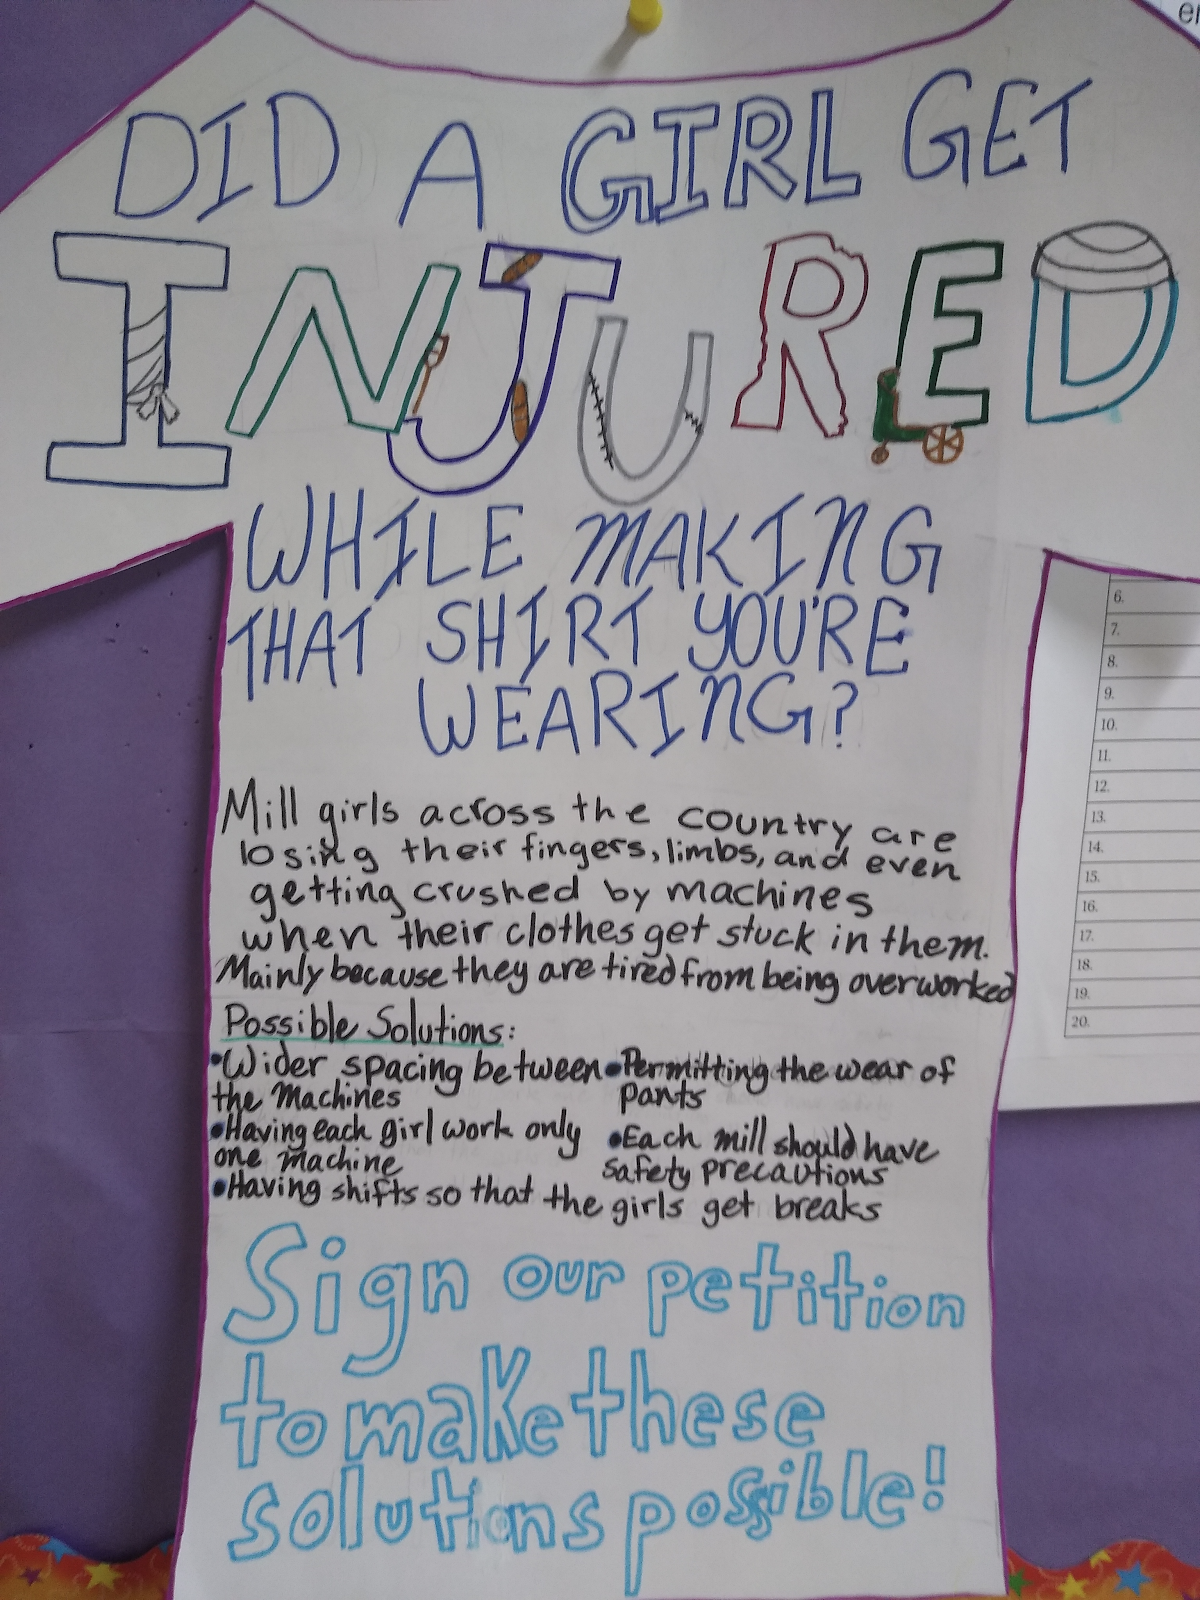 DID A GIRL GET
INJURED
WHILE MAKING
THAT SHIRT YOU'RE
WEARING?
Mill girls across the country are
losing their fingers, limbs, and even
getting crushed by machines
when their clothes get stuck in them.
Mainly because they are tired from being overworked
Possible Solutions:
•Wider spacing between
the Machines
•Having each girl work only
one machine
•Permitting the wear of
pants
•Each mill should have
safety precautions
•Having shifts so that the girls get breaks
Sign our petition
to make these
solutions possible!
6.
7.
8.
9.
10.
11.
12.
13.
14.
15.
16.
17.
18.
19.
20.